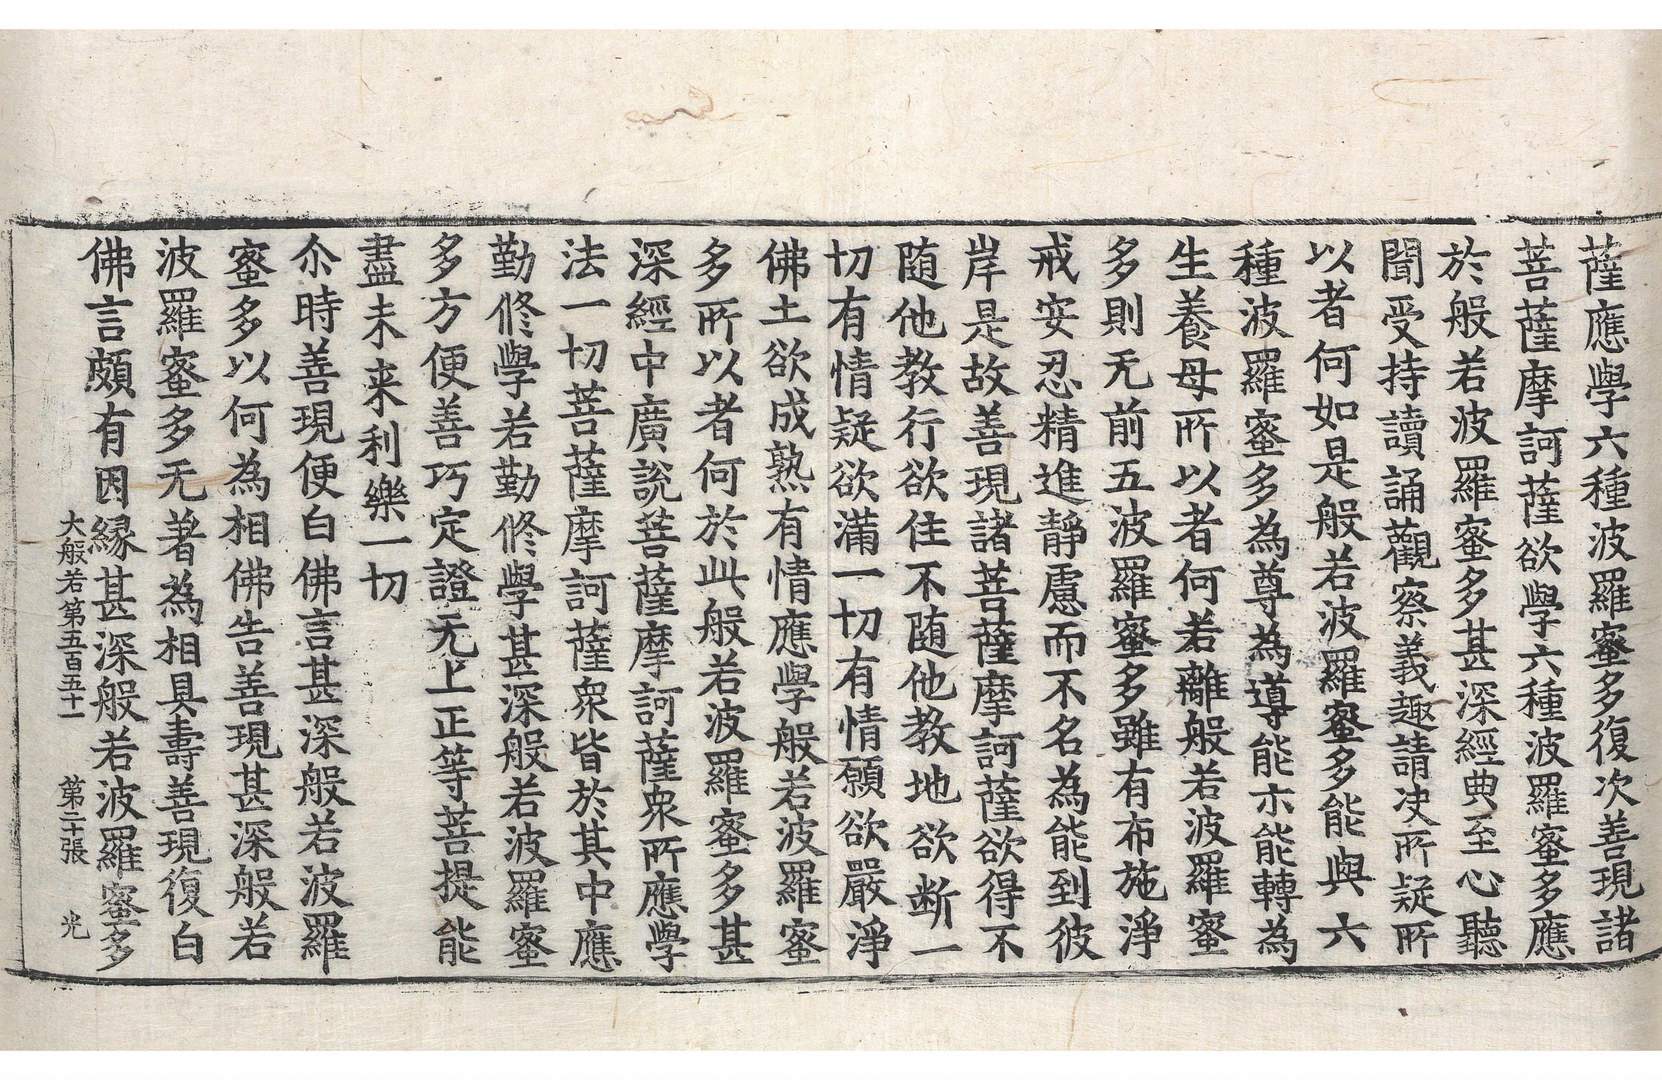 薩應學六種波羅蜜多復次善現諸
菩薩摩訶薩欲學六種波羅蜜多應
於般若波羅蜜多甚深經典至心聽
聞受持讀誦觀察義趣請決所疑所
以者何如是般若波羅蜜多能與六
種波羅蜜多為尊為導能示能轉為
生養母所以者何若離般若波羅蜜
多則无前五波羅蜜多雖有布施淨
戒安忍精進靜慮而不名為能到彼
岸是故善現諸菩薩摩訶薩欲得不
随他教行欲住不随他教地欲断一
切有情疑欲滿一切有情願欲嚴淨
佛土欲成熟有情應學般若波羅蜜
多所以者何於此般若波羅蜜多甚
深經中廣說菩薩摩訶薩衆所應學
法一切菩薩摩訶薩衆皆於其中應
勤修學若勤修學甚深般若波羅蜜
多方便善巧定證无上正等菩提能
盡未来利樂一切
尒時善現便白佛言甚深般若波羅
蜜多以何為相佛告善現甚深般若
波羅蜜多无著為相具壽善現復白
佛言頗有因縁甚深般若波羅蜜多
大般若第五百五十一 第二十張 光